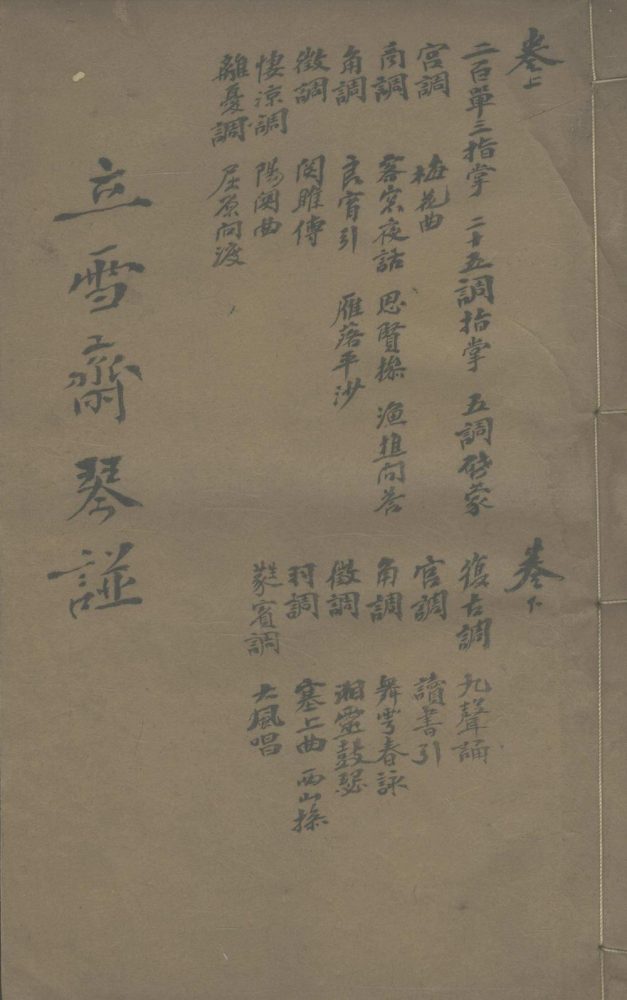 卷上
二百單三指掌 二十五調指掌 五調啓蒙
宮調 梅花曲
商調 客窓夜話 思賢操 漁樵问荅
角調 良宵引 雁落平沙
徵調 関雎傳
悽涼調 陽関曲
離憂調 屈原问渡
卷下
復古調 九聲誦
宮調 讀書引
角調 舞雩春詠
徵調 湘靈鼓瑟
羽調 塞上曲 西山操
蕤賓調 大風唱
立雪齋琴譜